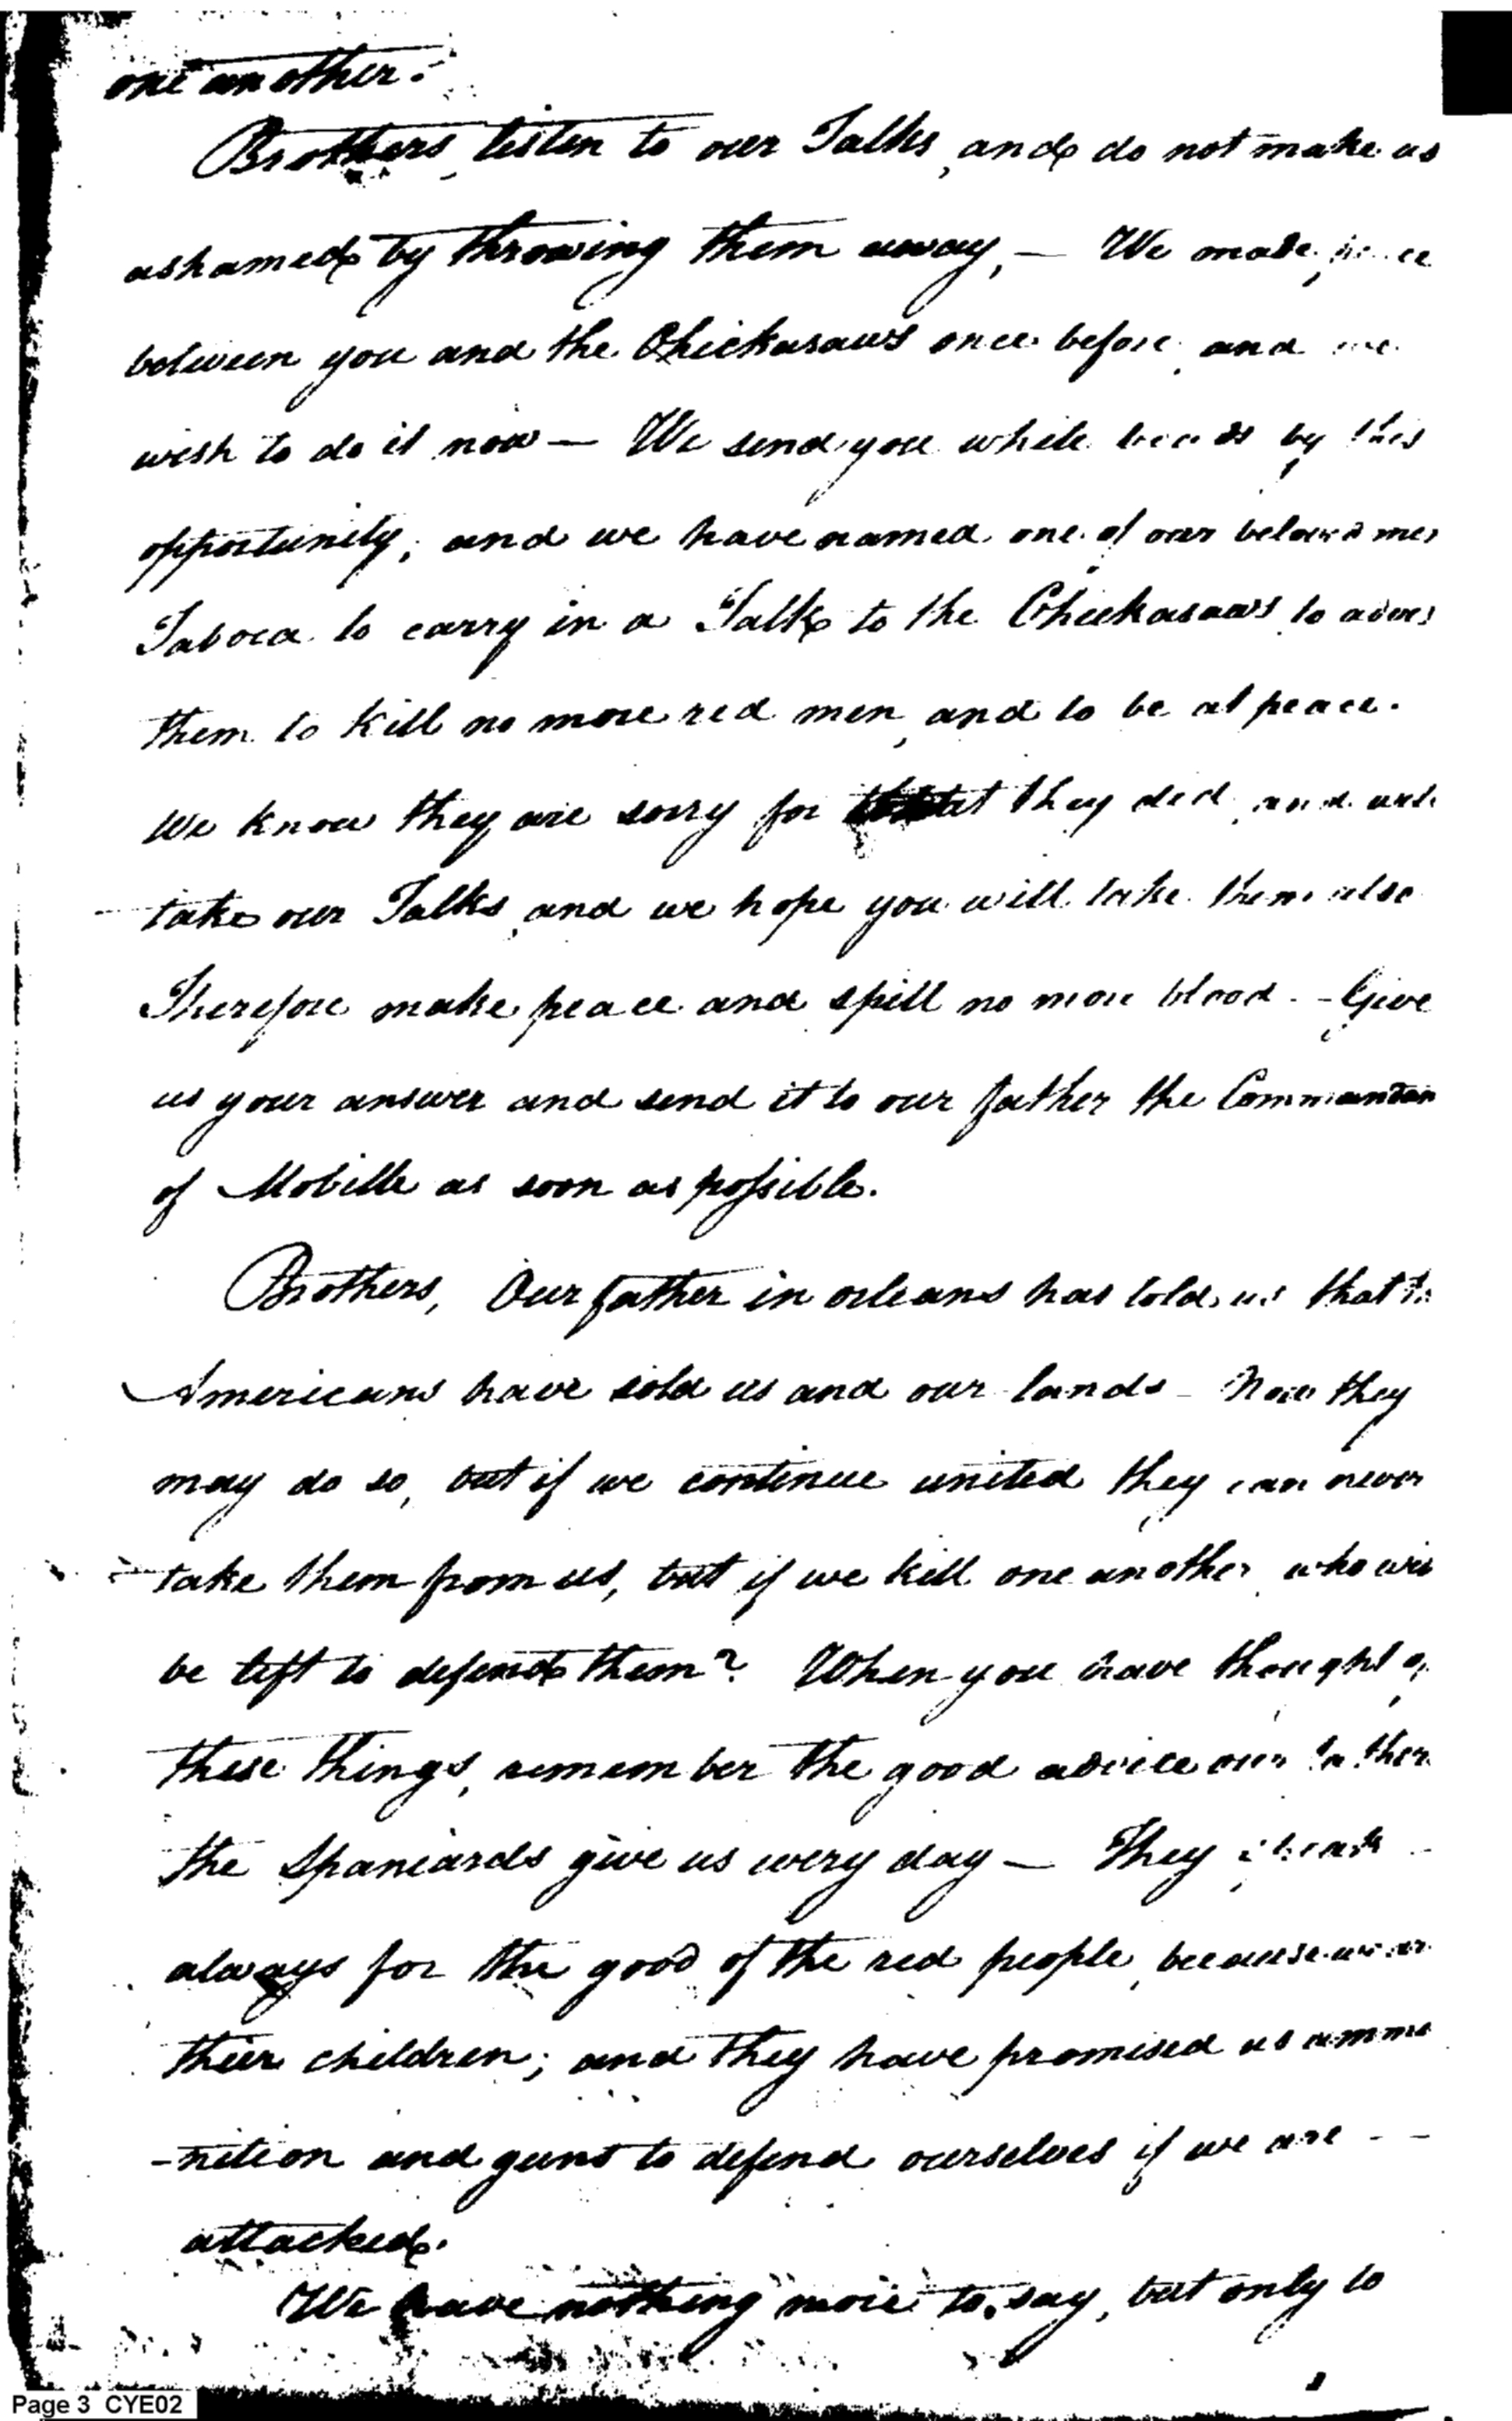 one another.
Brothers, listen to our Talks, and do not make us
ashamed by throwing them away, — We made peace
between you and the Chickasaws once before, and we
wish to do it now — We send you white beads by this
opportunity; and we have named one of our beloved men
Taboca to carry in a Talk to the Chickasaws, to advise
them to kill no more red men, and to be at peace.
We know they are sorry for what they did, and will
take our Talks, and we hope you will take them also
Therefore make peace and spill no more blood. - Give
us your answer and send it to our father the Commandan
of Mobille as soon as possible.
Brothers, Our father in orleans has told us that the
Americans have sold us and our lands - Now they
may do so, but if we continue united they can never
take them from us, but if we kill one another, who will
be left to defend them? When you have thought of
these things, remember the good advice our father
the Spaniards give us every day — They speak
always for the good of the red people, because we are
their children; and they have promised us ammu
-nition and guns to defend ourselves if we are
attacked.
We have nothing more to say, but only to
Page 3 CYE02